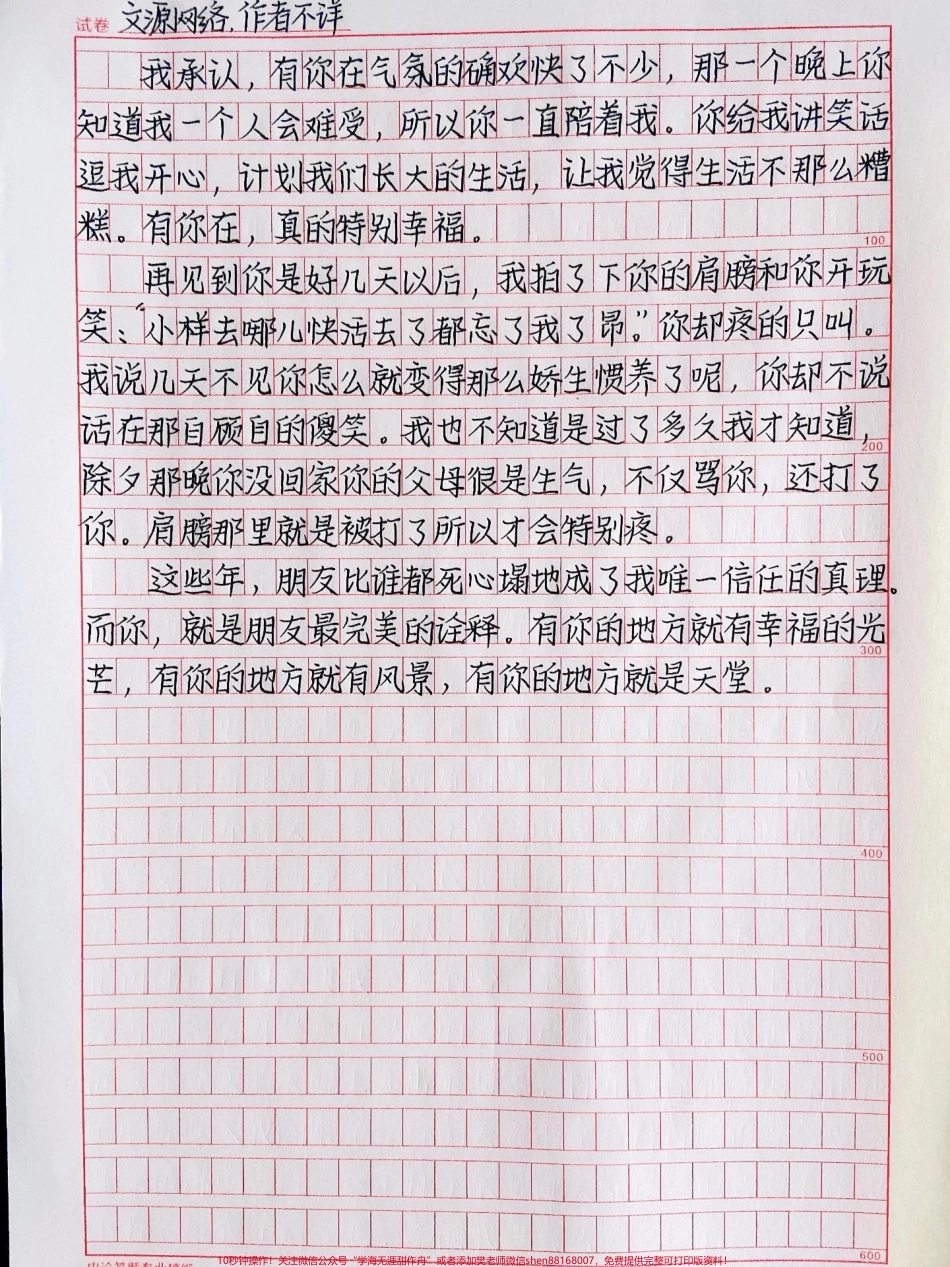 试卷 文源网络，作者不详
我承认，有你在气氛的确欢快了不少，那一个晚上你
知道我一个人会难受，所以你一直陪着我。你给我讲笑话
逗我开心，计划我们长大的生活，让我觉得生活不那么糟
糕。有你在，真的特别幸福。
100
再见到你是好几天以后，我拍了下你的肩膀和你开玩
笑：“小样去哪儿快活去了都忘了我了昂。”你却疼的只叫。
我说几天不见你怎么就变得那么娇生惯养了呢，你却不说
话在那自顾自的傻笑。我也不知道是过了多久我才知道，
200
除夕那晚你没回家你的父母很是生气，不仅骂你，还打了
你。肩膀那里就是被打了所以才会特别疼。
这些年，朋友比谁都死心塌地成了我唯一信任的真理。
而你，就是朋友最完美的诠释。有你的地方就有幸福的光
300
芒，有你的地方就有风景，有你的地方就是天堂。
400
500
600
10秒钟操作！关注微信公众号“学海无涯甜作舟”或者添加樊老师微信shen88168007，免费提供完整可打印版资料！